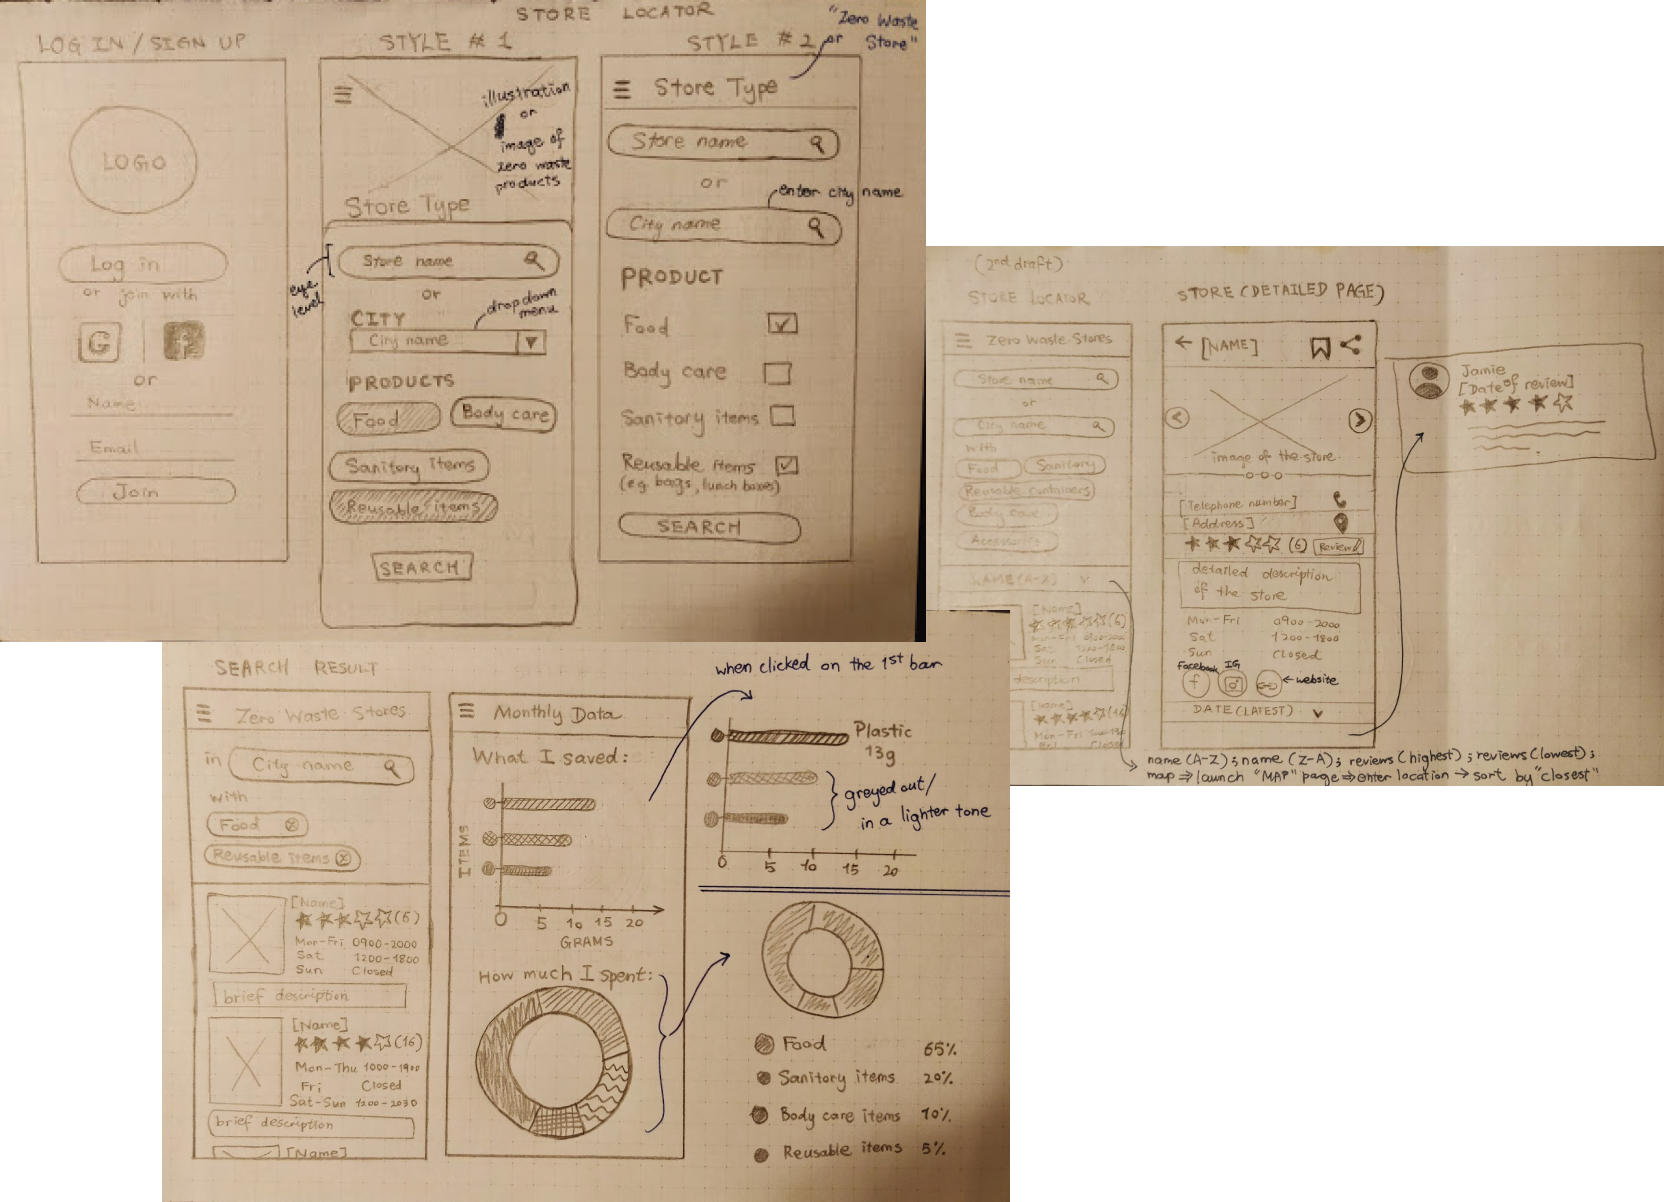 STORE LOCATOR
LOG IN / SIGN UP
LOGO
Log in
or join with
G f
or
Name
Email
Join
STYLE # 1
illustration
or
image of
zero waste
products
Store Type
eye
level
Store name
or
dropdown
menu
CITY
City name
PRODUCTS
Food
Body care
Sanitory items
Reusable items
SEARCH
STYLE # 2
"Zero Waste
or Store"
Store Type
Store name
or
enter city name
City name
PRODUCT
Food
Body care
Sanitory items
Reusable items
(e.g. bags, lunch boxes)
SEARCH
(2nd draft)
STORE LOCATOR
Zero Waste Stores
Store name
or
City name
with
Food
Sanitory
Reusable containers
Body care
Accessories
NAME (A-Z)
[Name]
(6)
Mon-Fri 0900-2000
Sat 1200-1800
Sun Closed
description
[Name]
Mon-Thu
Fri Closed
STORE (DETAILED PAGE)
[NAME]
image of the store
[Telephone number]
[Address]
(6) Review
detailed description
of the store
Mon-Fri 0900-2000
Sat 1200-1800
Sun Closed
Facebook IG
f
website
DATE (LATEST)
Jamie
[Date of review]
name (A-Z); name (Z-A); reviews (highest); reviews (lowest);
map ⇒ launch "MAP" page ⇒ enter location → sort by "closest"
SEARCH RESULT
Zero Waste Stores
in City name
with
Food
Reusable items
[Name]
(6)
Mon-Fri 0900-2000
Sat 1200-1800
Sun Closed
brief description
[Name]
(16)
Mon-Thu 1000-1900
Fri Closed
Sat-Sun 1200-2030
brief description
[Name]
Monthly Data
What I saved:
ITEMS
0 5 10 15 20
GRAMS
How much I spent:
when clicked on the 1st bar
Plastic
13g
greyed out/
in a lighter tone
0 5 10 15 20
Food 65%
Sanitory items 20%
Body care items 10%
Reusable items 5%